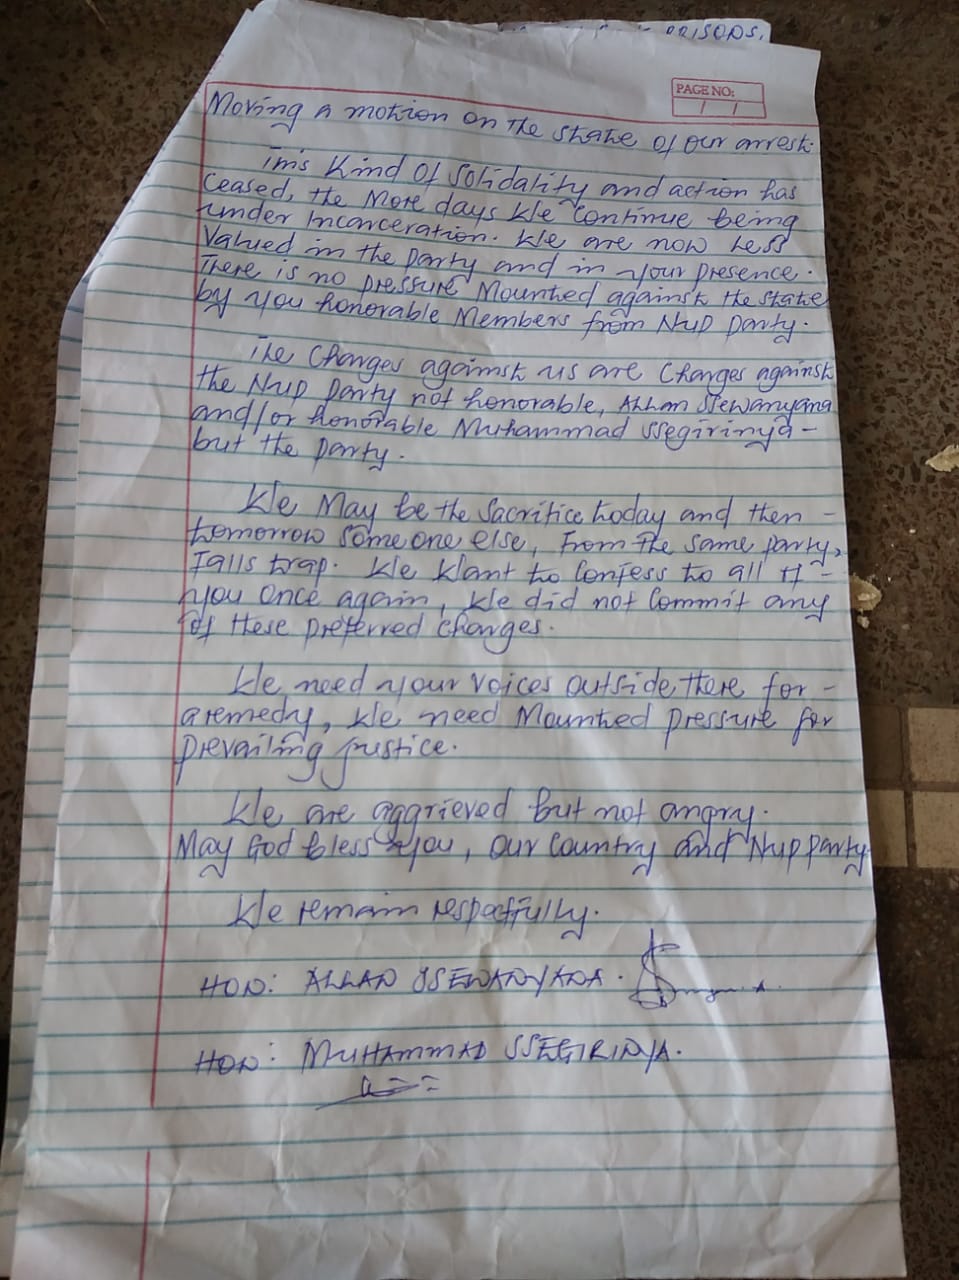 PRISONS,
PAGE NO:
Moving a motion on the state of our arrest.
This Kind of Solidality and action has
Ceased, the More days We Continue being
under Incarceration. We are now Less
Valued in the party and in your presence.
There is no pressure Mounted against the state
by you honorable Members from Nup party.
The Charges against us are Charges against
the Nup party not honorable, Allan Ssewanyana
and/or honorable Muhammad Ssegirinya -
but the party.
We May be the Sacrifice today and then -
tomorrow someone else, from the same party,
falls trap. We Want to Confess to all of -
you once again, We did not Commit any
of these preferred charges.
We need your voices outside there for -
a remedy, We need Mounted pressure for
prevailing justice.
We are aggrieved but not angry.
May God bless you, our Country and Nup party
We remain respectfully.
HON: ALLAN SSEWANYANA.
HON: MUHAMMAD SSEGIRINYA.